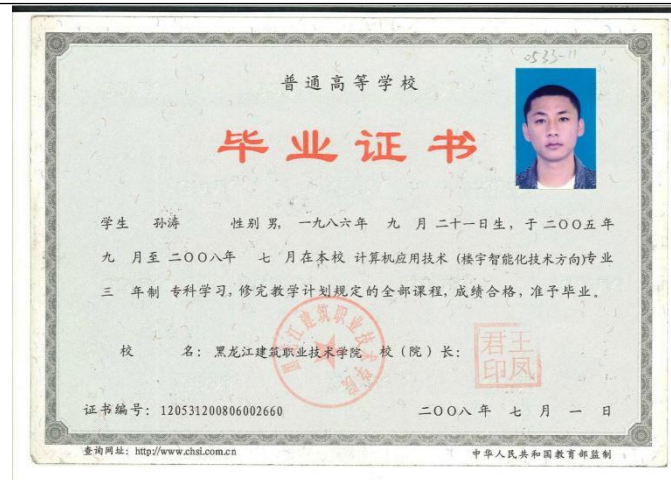 0533-11
普通高等学校
毕业证书
学生 孙涛 性别 男, 一九八六年 九 月 二十一日生, 于 二〇〇五年
九 月至 二〇〇八年 七 月在本校 计算机应用技术 (楼宇智能化技术方向)专业
三 年制 专科学习, 修完教学计划规定的全部课程, 成绩合格, 准予毕业。
校 名: 黑龙江建筑职业技术学院 校 (院) 长:
黑龙江建筑职业技术学院
君王
印凤
证书编号: 120531200806002660 二〇〇八 年 七 月 一 日
查询网址: http://www.chsi.com.cn 中华人民共和国教育部监制